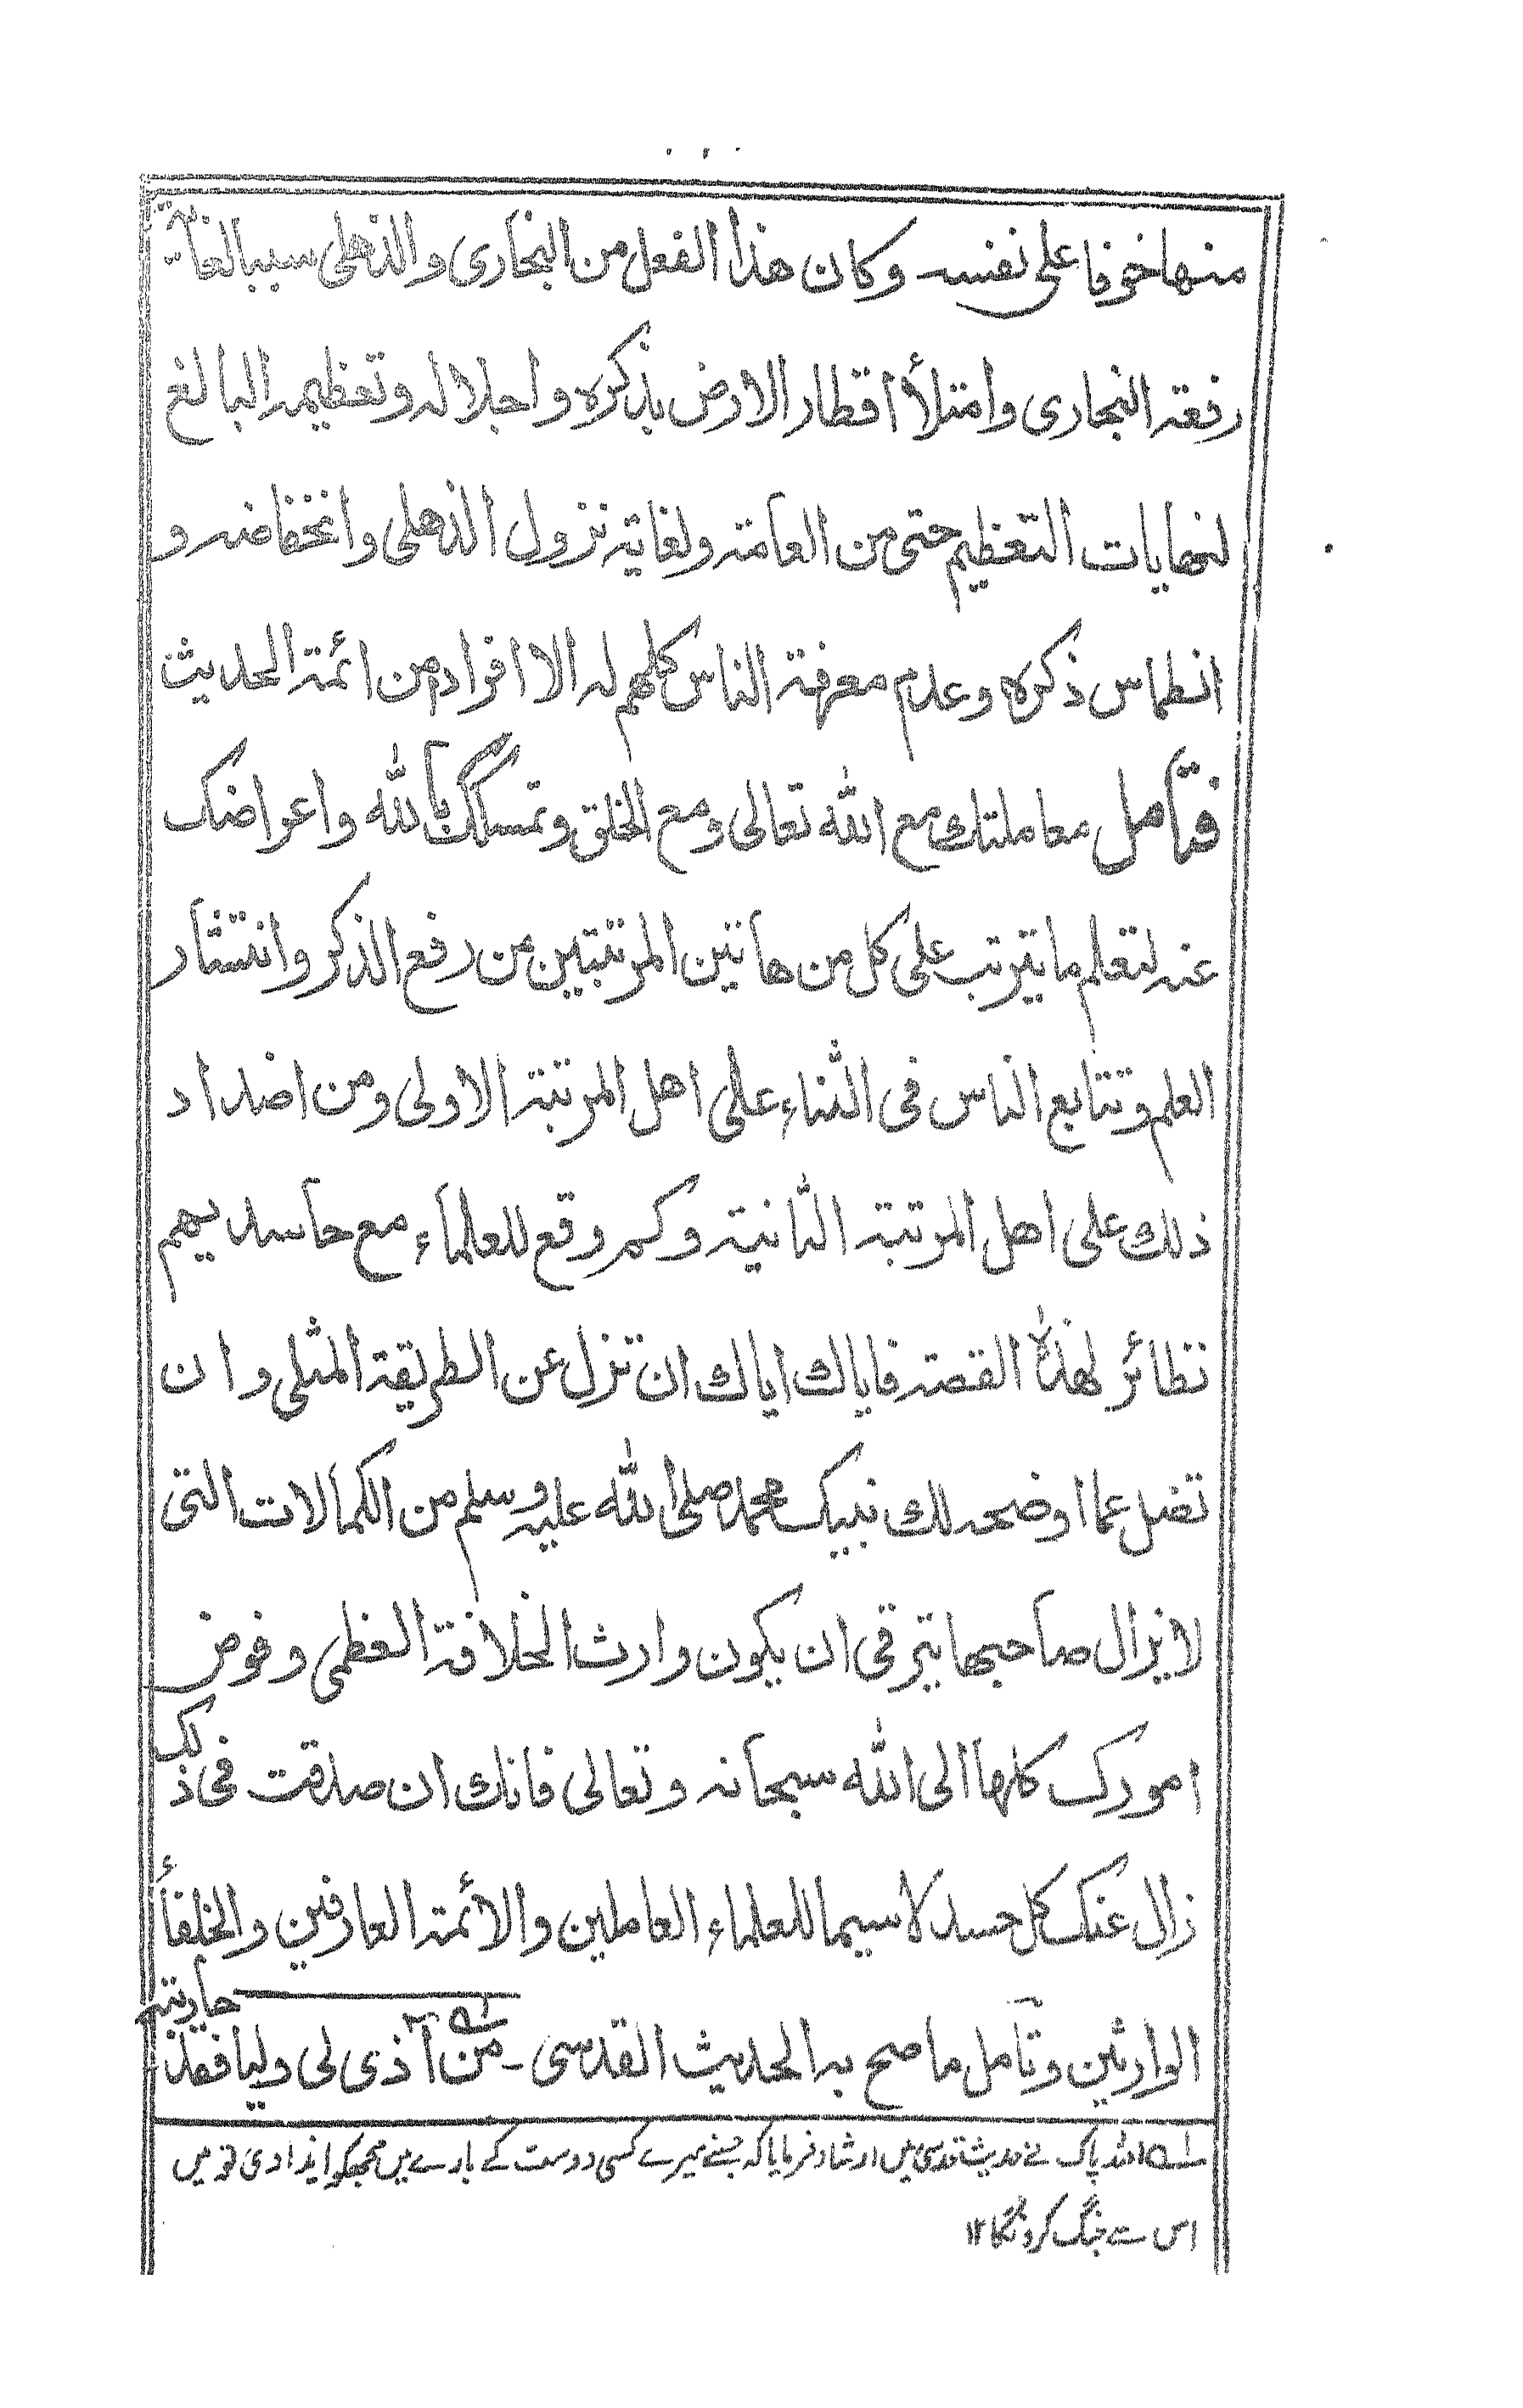 منها خوفا على نفسه وكان هذا الفعل من البخاري والذهلى سببا لغاية
رفعة البخارى وامتلأ اقطار الارض بذكره واجلاله وتعظيمه البالغ
لنهايات التعظيم حتى من العامة ولغاية نزول الذهلى وانخفاضه و
انطماس ذكره وعدم معرفة الناس كلهم له الا افراد من ائمة الحديث
فتأمل معاملتك مع الله تعالى ومع الخلق وتمسكك بالله واعراضك
عنه لتعلم ما يترتب على كل من هاتين المرتبتين من رفع الذكر وانتشار
العلم وتتابع الناس فى الثناء على اهل المرتبة الاولى ومن اضداد
ذلك على اهل المرتبة الثانية وكم وقع للعلماء مع حاسديهم
نظائر لهذه القصة فاياك اياك ان تزل عن الطريقة المثلى وان
تضل عما اوضحه لك نبيك محمد صلى الله عليه وسلم من الكمالات التى
لا يزال صاحبها يترقى ان يكون وارث الخلافة العظمى وفوض
امورك كلها الى الله سبحانه وتعالى فانك ان صدقت فى ذلك
زال عنك كل حسد لا سيما للعلماء العاملين والائمة العارفين والخلفاء
الوارثين وتأمل ما صح به الحديث القدسى - من آذى لى وليا فقد حاربته
لہ اللہ پاک نے حدیث قدسی میں ارشاد فرمایا کہ جسنے میرے کسی دوست کے بارے میں مجھکو ایذا دی تو میں
اس سے جنگ کرونگا ۱۲